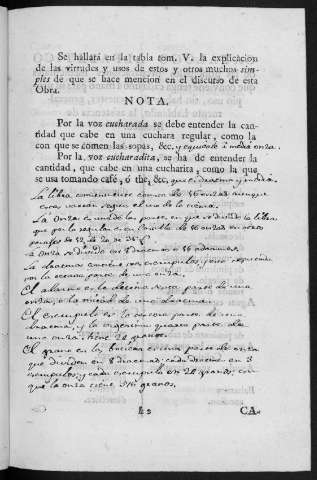 Se hallará en la tabla tom. V. la explicacion
de las virtudes y usos de estos y otros muchos sim-
ples de que se hace mencion en el discurso de esta
Obra.
NOTA.
Por la voz cucharada se debe entender la can-
tidad que cabe en una cuchara regular, como la
con que se comen las sopas, &c. y equivale à media onza.
Por la voz cucharadita, se ha de entender la
cantidad, que cabe en una cucharita, como la que
se usa tomando café, ó thé, &c. que es dracma y media.
La libra comunmente consta de 16 onzas aunque
esta varían segun el uso de la
La onza es una de las partes en que se divide la libra
que por lo regular en Castilla es de 16 onzas en otros
de 12, de 20, de
La onza se divide en 8 dracmas o 16 adarmes.
La dracma contiene tres escrupulos, y
por la octava parte de una onza.
El adarme es la decima sexta parte de una
onza, o la mitad de una dracma.
El escrupulo es la tercera parte de una
dracma, y la vigesima quarta parte de
una onza: tiene 24 granos.
El grano en las boticas es una parte de onza
que dividen en 8 dracmas; cada dracma en 3
escrupulos; y cada escrupulo en 24 granos; con
que la onza tiene 576 granos.
CA-